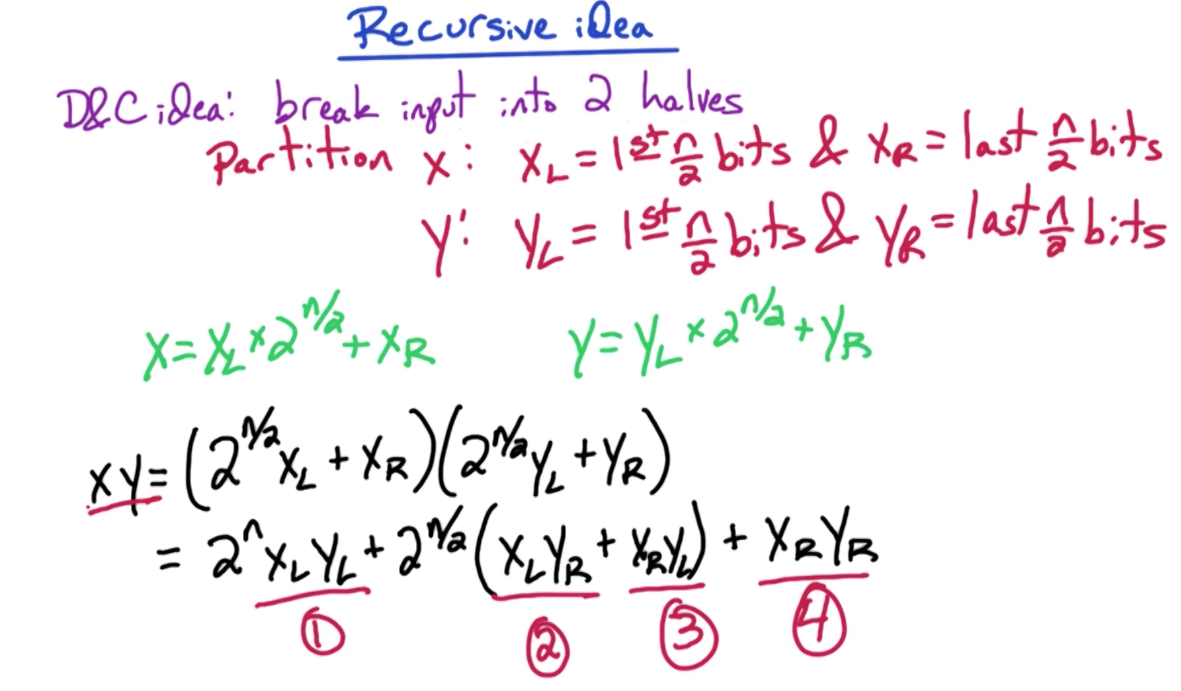 Recursive idea
D&C idea: break input into 2 halves
Partition x: x_L = 1st n/2 bits & x_R = last n/2 bits
y: y_L = 1st n/2 bits & y_R = last n/2 bits
x = x_L × 2^{n/2} + x_R y = y_L × 2^{n/2} + y_R
xy = (2^{n/2} x_L + x_R)(2^{n/2} y_L + y_R)
= 2^n x_L y_L + 2^{n/2} (x_L y_R + x_R y_L) + x_R y_R
① ② ③ ④